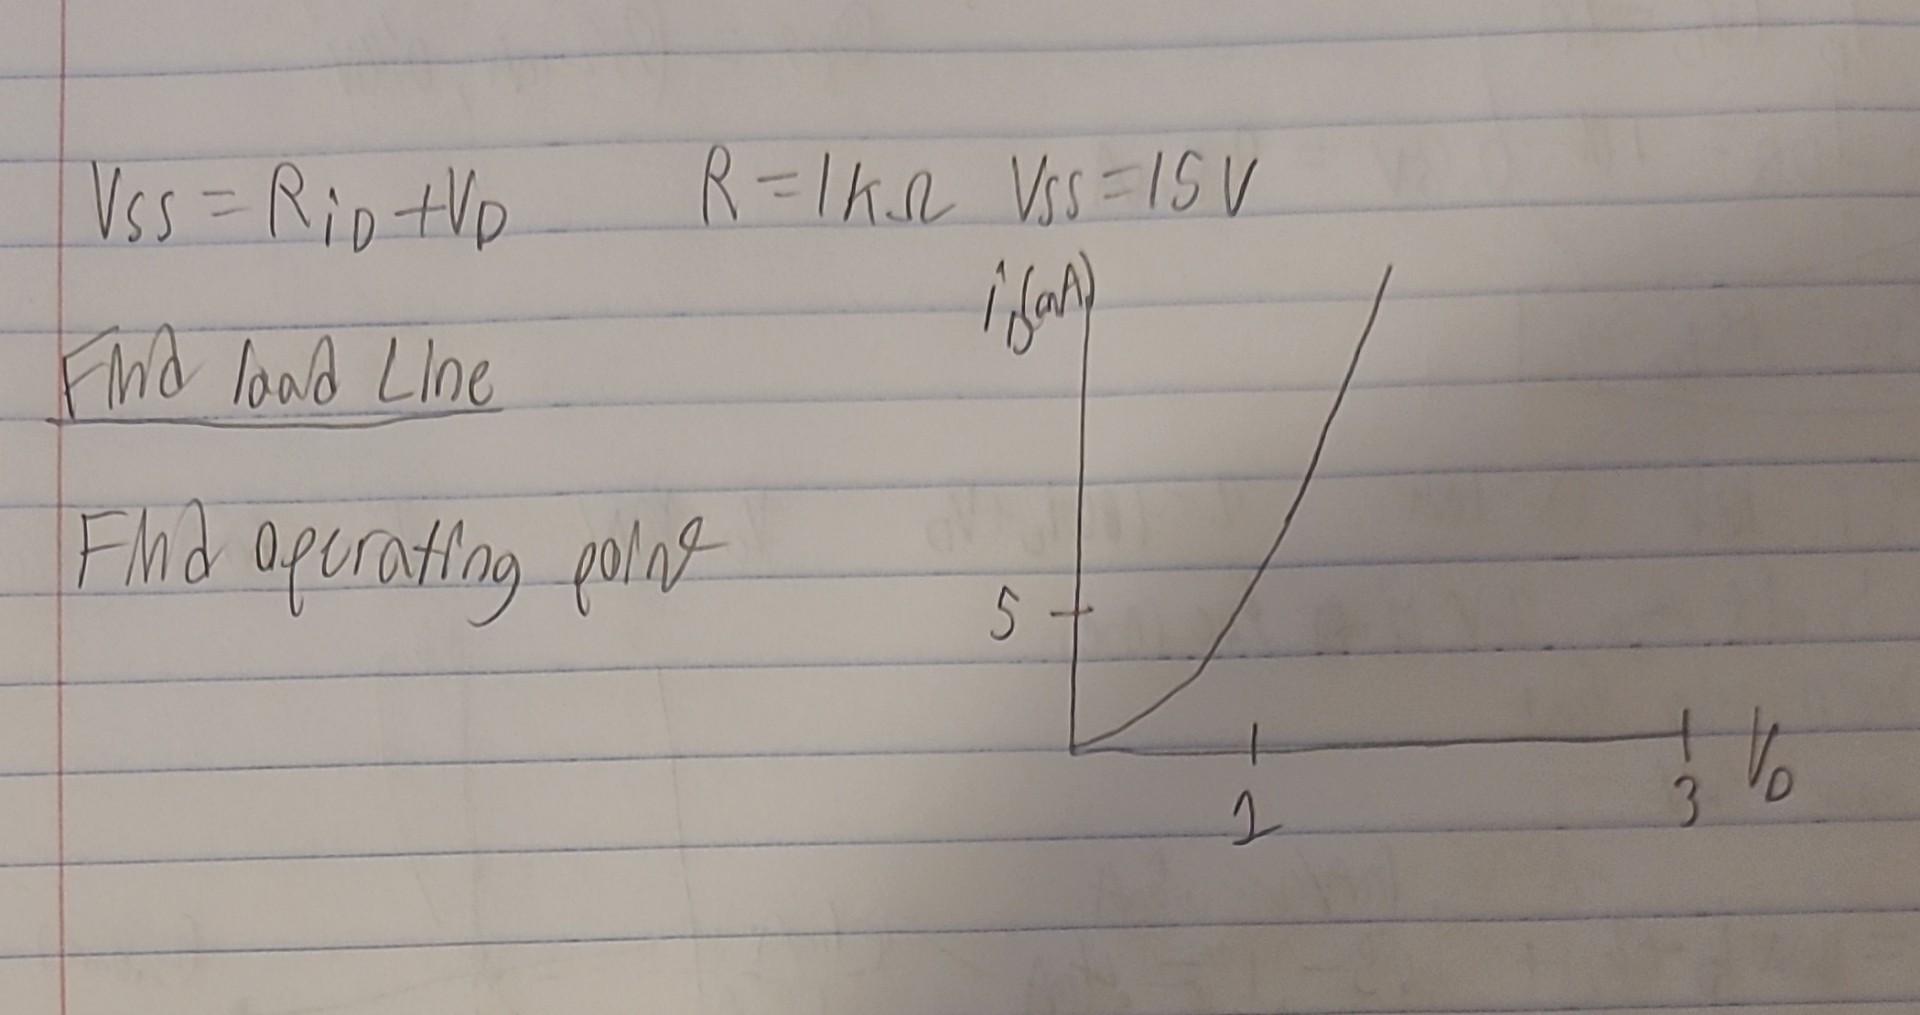 Vss = RiD + VD R = 1KΩ Vss = 15V
Find load Line
Find operating point
iD(mA)
5
1
3 VD